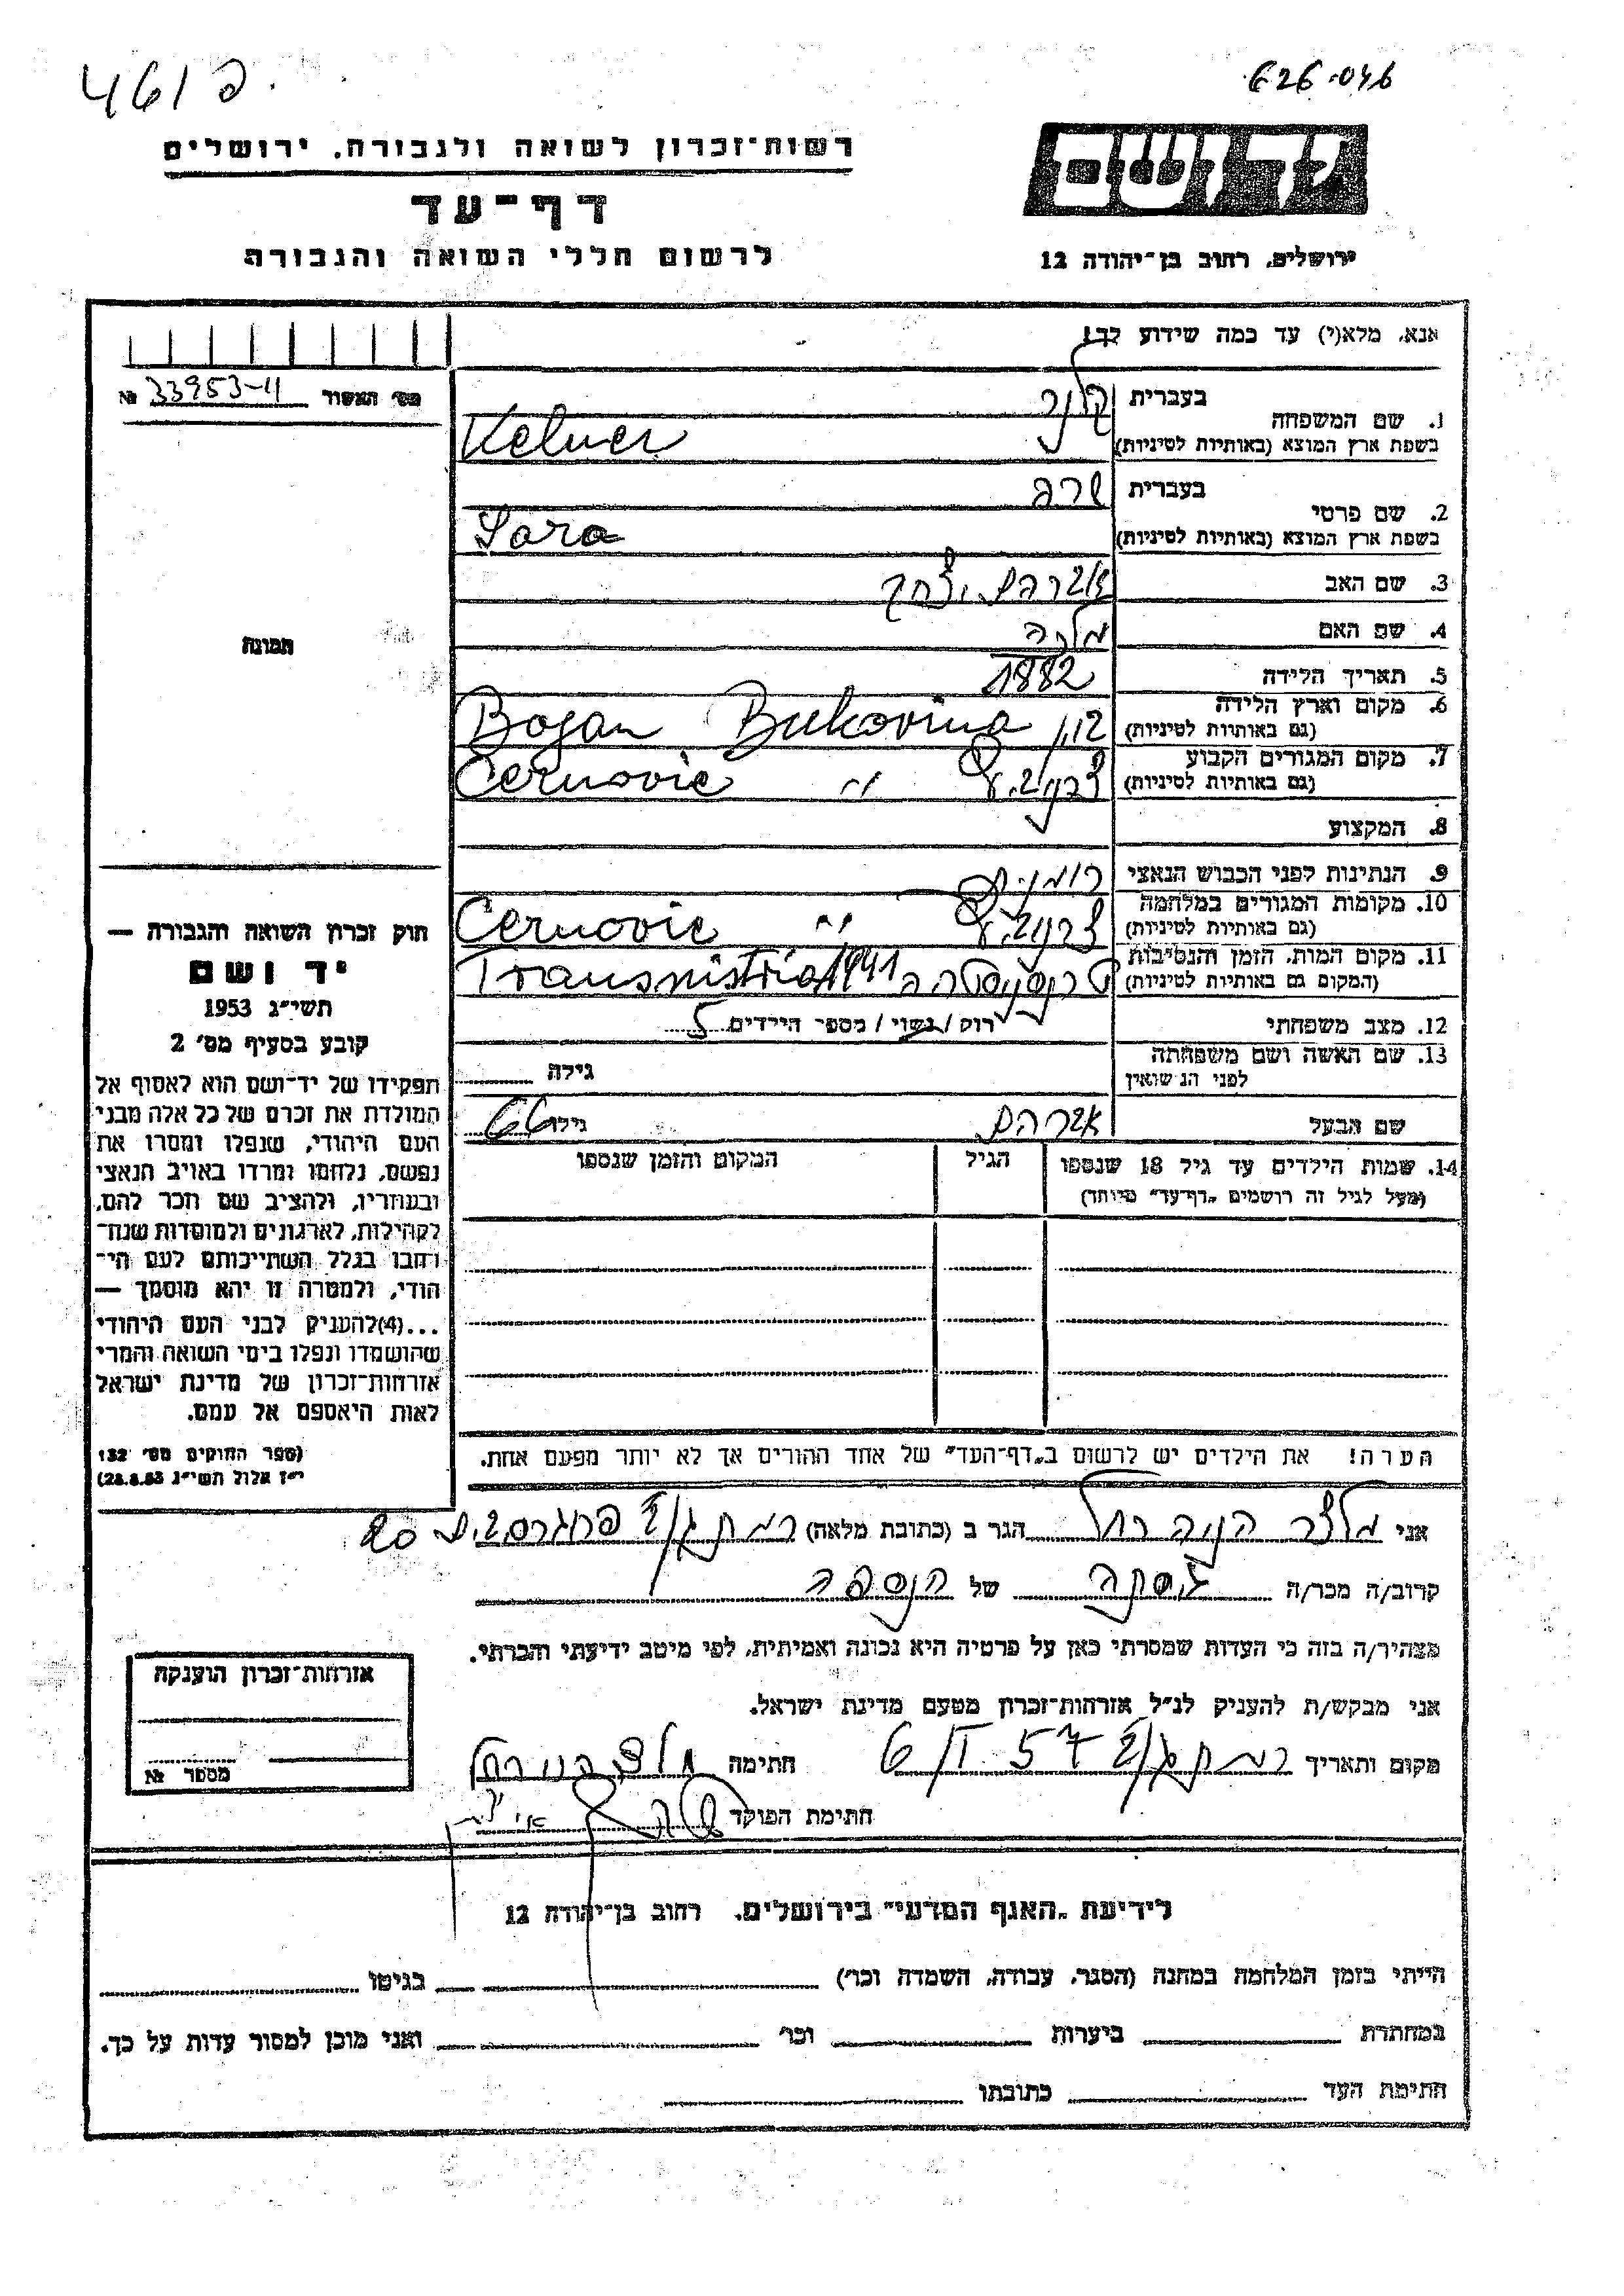 461 פ.
626.046
רשות-זכרון לשואה ולגבורה, ירושלים
דף-עד
לרשום חללי השואה והגבורה
יד ושם
ירושלים, רחוב בן-יהודה 12
אנא, מלא(י) עד כמה שידוע לך!
מס׳ האשור 33953-4 №
תמונה
1. שם המשפחה
בעברית קלנר
בשפת ארץ המוצא (באותיות לטיניות) Kelner
2. שם פרטי
בעברית שרה
בשפת ארץ המוצא (באותיות לטיניות) Sara
3. שם האב אברהם יצחק
4. שם האם מלכה
5. תאריך הלידה 1882
6. מקום וארץ הלידה
(גם באותיות לטיניות) Bojan Bukovina
7. מקום המגורים הקבוע
(גם באותיות לטיניות) צרנוביץ " Cernovic
8. המקצוע
9. הנתינות לפני הכבוש הנאצי רומנית
10. מקומות המגורים במלחמה
(גם באותיות לטיניות) צרנוביץ " Cernovic
11. מקום המות, הזמן והנסיבות
(המקום גם באותיות לטיניות) 1941 Transnistria
12. מצב משפחתי רוק / נשוי / מספר הילדים 5
13. שם האשה ושם משפחתה
לפני הנישואין גילה
שם הבעל אברהם גילו 66
14. שמות הילדים עד גיל 18 שנספו
(מעל לגיל זה רושמים "דף-עד" מיוחד)
הגיל
המקום והזמן שנספו
הערה! את הילדים יש לרשום ב"דף-העד" של אחד ההורים אך לא יותר מפעם אחת.
חוק זכרון השואה והגבורה —
יד ושם
תשי״ג 1953
קובע בסעיף מס׳ 2
תפקידו של יד-ושם הוא לאסוף אל
המולדת את זכרם של כל אלה מבני
העם היהודי, שנפלו ומסרו את
נפשם, נלחמו ומרדו באויב הנאצי
ובעוזריו, ולהציב שם וזכר להם,
לקהילות, לארגונים ולמוסדות שנח-
רחבו בגלל השתייכותם לעם הי-
הודי, ולמטרה זו יהא מוסמך —
...(4)להעניק לבני העם היהודי
שהושמדו ונפלו בימי השואה והמרי
אזרחות-זכרון של מדינת ישראל
לאות היאספם אל עמם.
(ספר החוקים מס׳ 132
י״ז אלול תשי״ג 28.8.53)
אני מלצר הניה רחל הגר ב (כתובת מלאה) רמת גן 20
קרוב/ה מכר/ה של הנספה
מצהיר/ה בזה כי העדות שמסרתי כאן על פרטיה היא נכונה ואמיתית, לפי מיטב ידיעתי והכרתי.
אני מבקש/ת להעניק לנ״ל אזרחות-זכרון מטעם מדינת ישראל.
מקום ותאריך רמת גן 6/I 57 חתימה
חתימת הפוקד
אזרחות-זכרון הוענקה
מספר №
לידיעת "האגף המדעי" בירושלים, רחוב בן-יהודה 12
הייתי בזמן המלחמה במחנה (הסגר, עבודה, השמדה וכו׳) בגיטו
במחתרת ביערות וכו׳ ואני מוכן למסור עדות על כך.
חתימת העד כתובתו